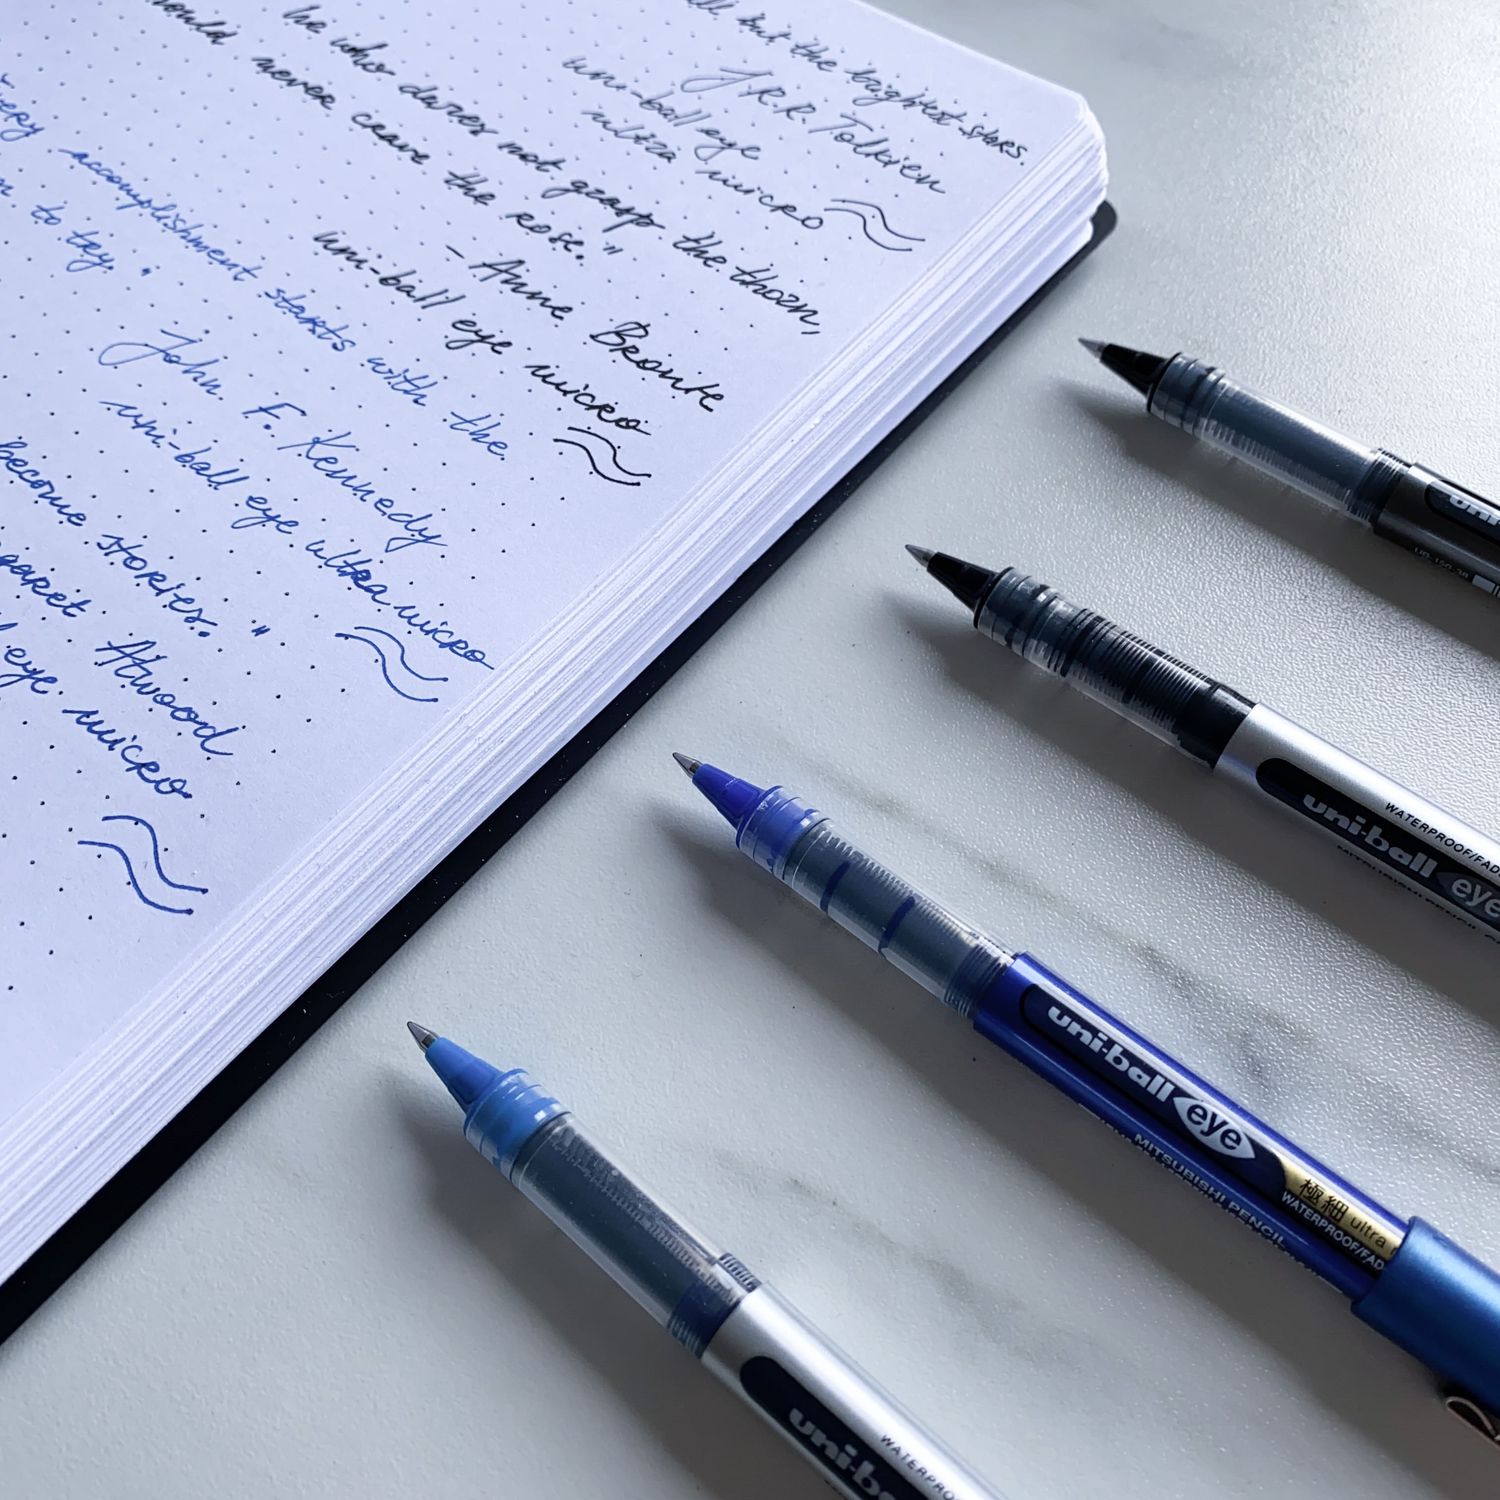 but the brightest stars.
J.R.R. Tolkien
uni-ball eye
ultra micro
he who dares not grasp the thorn,
should never crave the rose."
- Anne Bronte
uni-ball eye micro
Every accomplishment starts with the
to try."
John F. Kennedy
uni-ball eye ultra micro
become stories."
Margaret Atwood
eye micro
uni
UB-150-38
WATERPROOF/FAD
uni-ball eye
uni-ball eye
MITSUBISHI PENCIL
極細 ultra
WATERPROOF/FAD
WATERPROO
uni-b